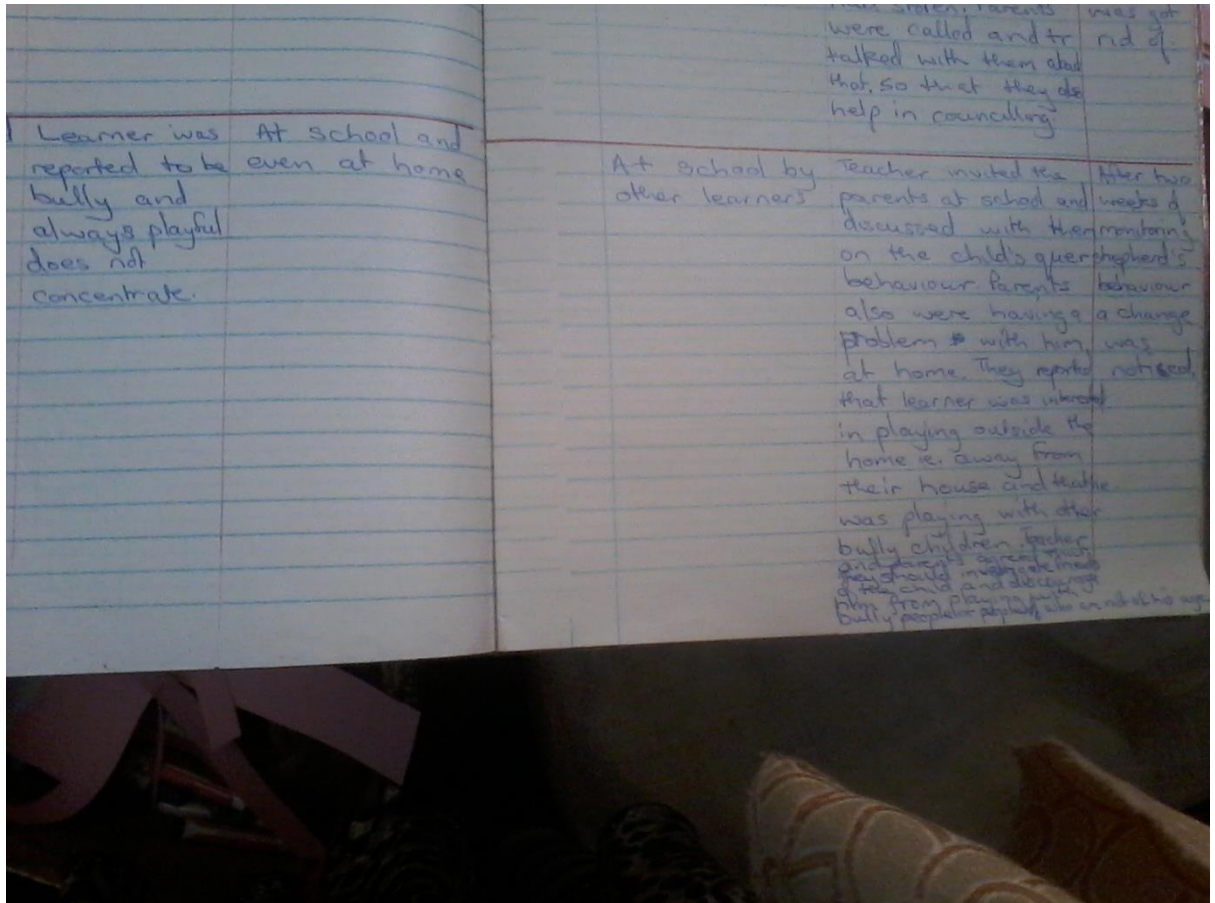 stolen. Parents
were called and tr
talked with them abod
that, so that they also
help in councilling.
was got
rid of.
Learner was
reported to be
bully and
always playful
does not
concentrate.
At school and
even at home
At school by
other learners
Teacher invited the
parents at school and
discussed with them
on the child's quer
behaviour Parents
also were having a
problem with him,
at home. They reported
that learner was interested
in playing outside the
home ie. away from
their house and that he
was playing with other
bully children. Teacher
and parents agreed that
they should
a the child and discourage
him from playing with
bully people who are not of his age
After two
weeks of
monitoring
shepherd's
behaviour
a change
was
noticed.